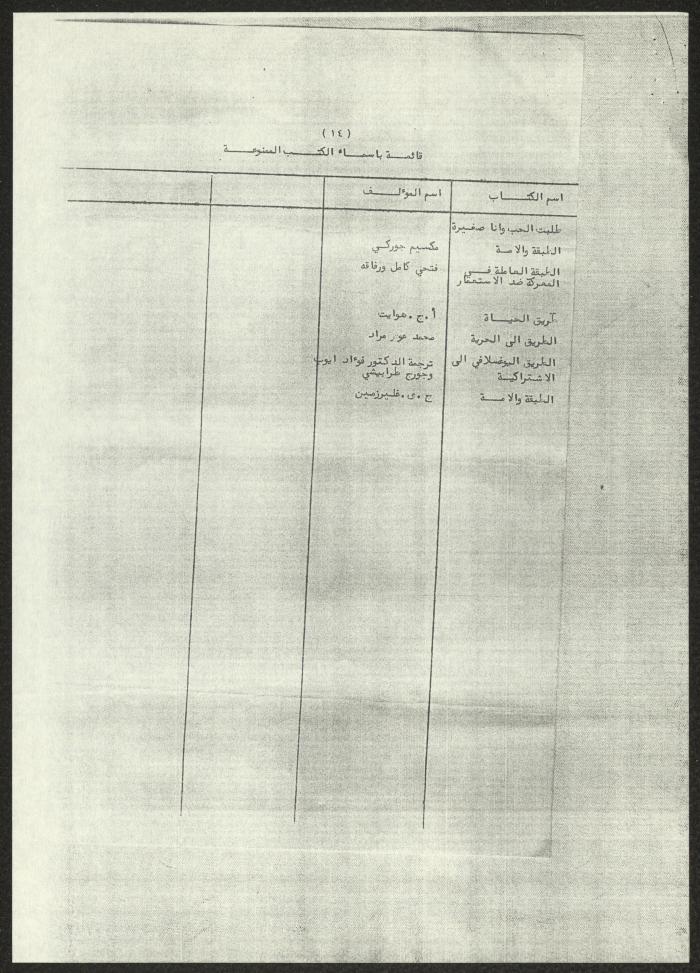 (١٤)
قائمة باسماء الكتب الممنوعة
اسم الكتاب	اسم الموءلف
طلبت الحب وانا صغيرة
الطبقة والامة	مكسيم جوركي
الطبقة العاملة في	فتحي كامل ورفاقه
المعركة ضد الاستعمار
طريق الحياة	أ.ج.هوايت
الطريق الى الحرية	محمد مراد
الطريق اليوغسلافي الى	ترجمة الدكتور فوءاد ايوب
الاشتراكية	وجورج طرابيشي
الطبقة والامة	ج.ى.غليرزمين